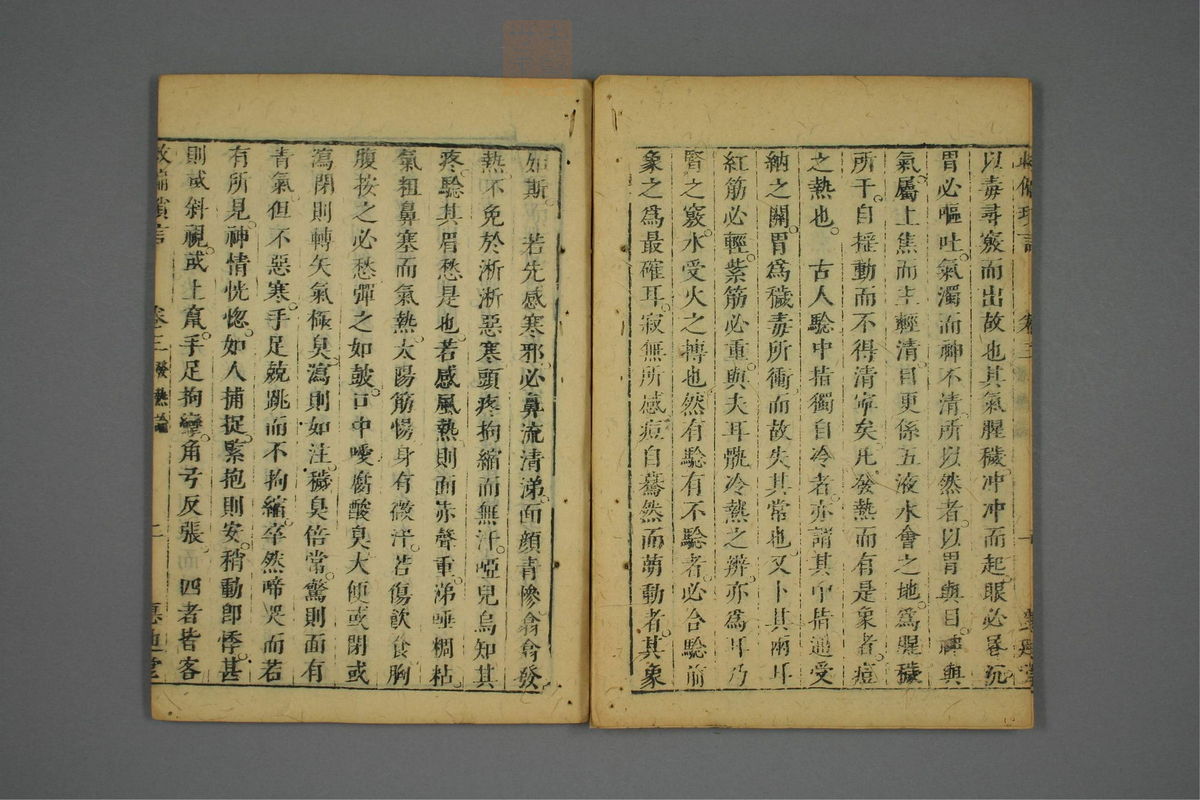 以毒尋竅而出故也其氣腥穢冲冲而起眼必昏沉
胃必嘔吐氣濁而神不清所以然者以胃與目神與
氣屬上焦而主輕清目更係五液水會之地爲腥穢
所干自搖動而不得清寧矣凡發熱而有是象者痘
之熱也 古人驗中指獨自冷者亦謂其中指通受
納之關胃爲穢毒所衝而故失其常也又卜其兩耳
紅筋必輕紫筋必重與夫耳骩冷熱之辨亦爲耳乃
腎之竅水受火之轉也然有驗有不驗者必合驗前
象之爲最確耳寂無所感痘自驀然而萌動者其象
如斯 若先感寒邪必鼻流清涕面顏青慘翕翕發
熱不免於淅淅惡寒頭疼拘縮而無汗啞兒烏知其
疼驗其眉愁是也若感風熱則面赤聲重涕唾稠粘
氣粗鼻塞而氣熱太陽筋惕身有微汗若傷飲食胸
腹按之必愁彈之如鼓口中噯腐酸臭大便或閉或
瀉閉則轉矢氣極臭瀉則如注穢臭倍常驚則面有
青氣但不惡寒手足兢跳而不拘縮卒然啼哭而若
有所見神情恍惚如人捕捉緊抱則安稍動卽悸甚
則或斜視或上竄手足拘攣角弓反張 四者皆客
救偏瑣言 卷三 發熱論 二 惠迪堂